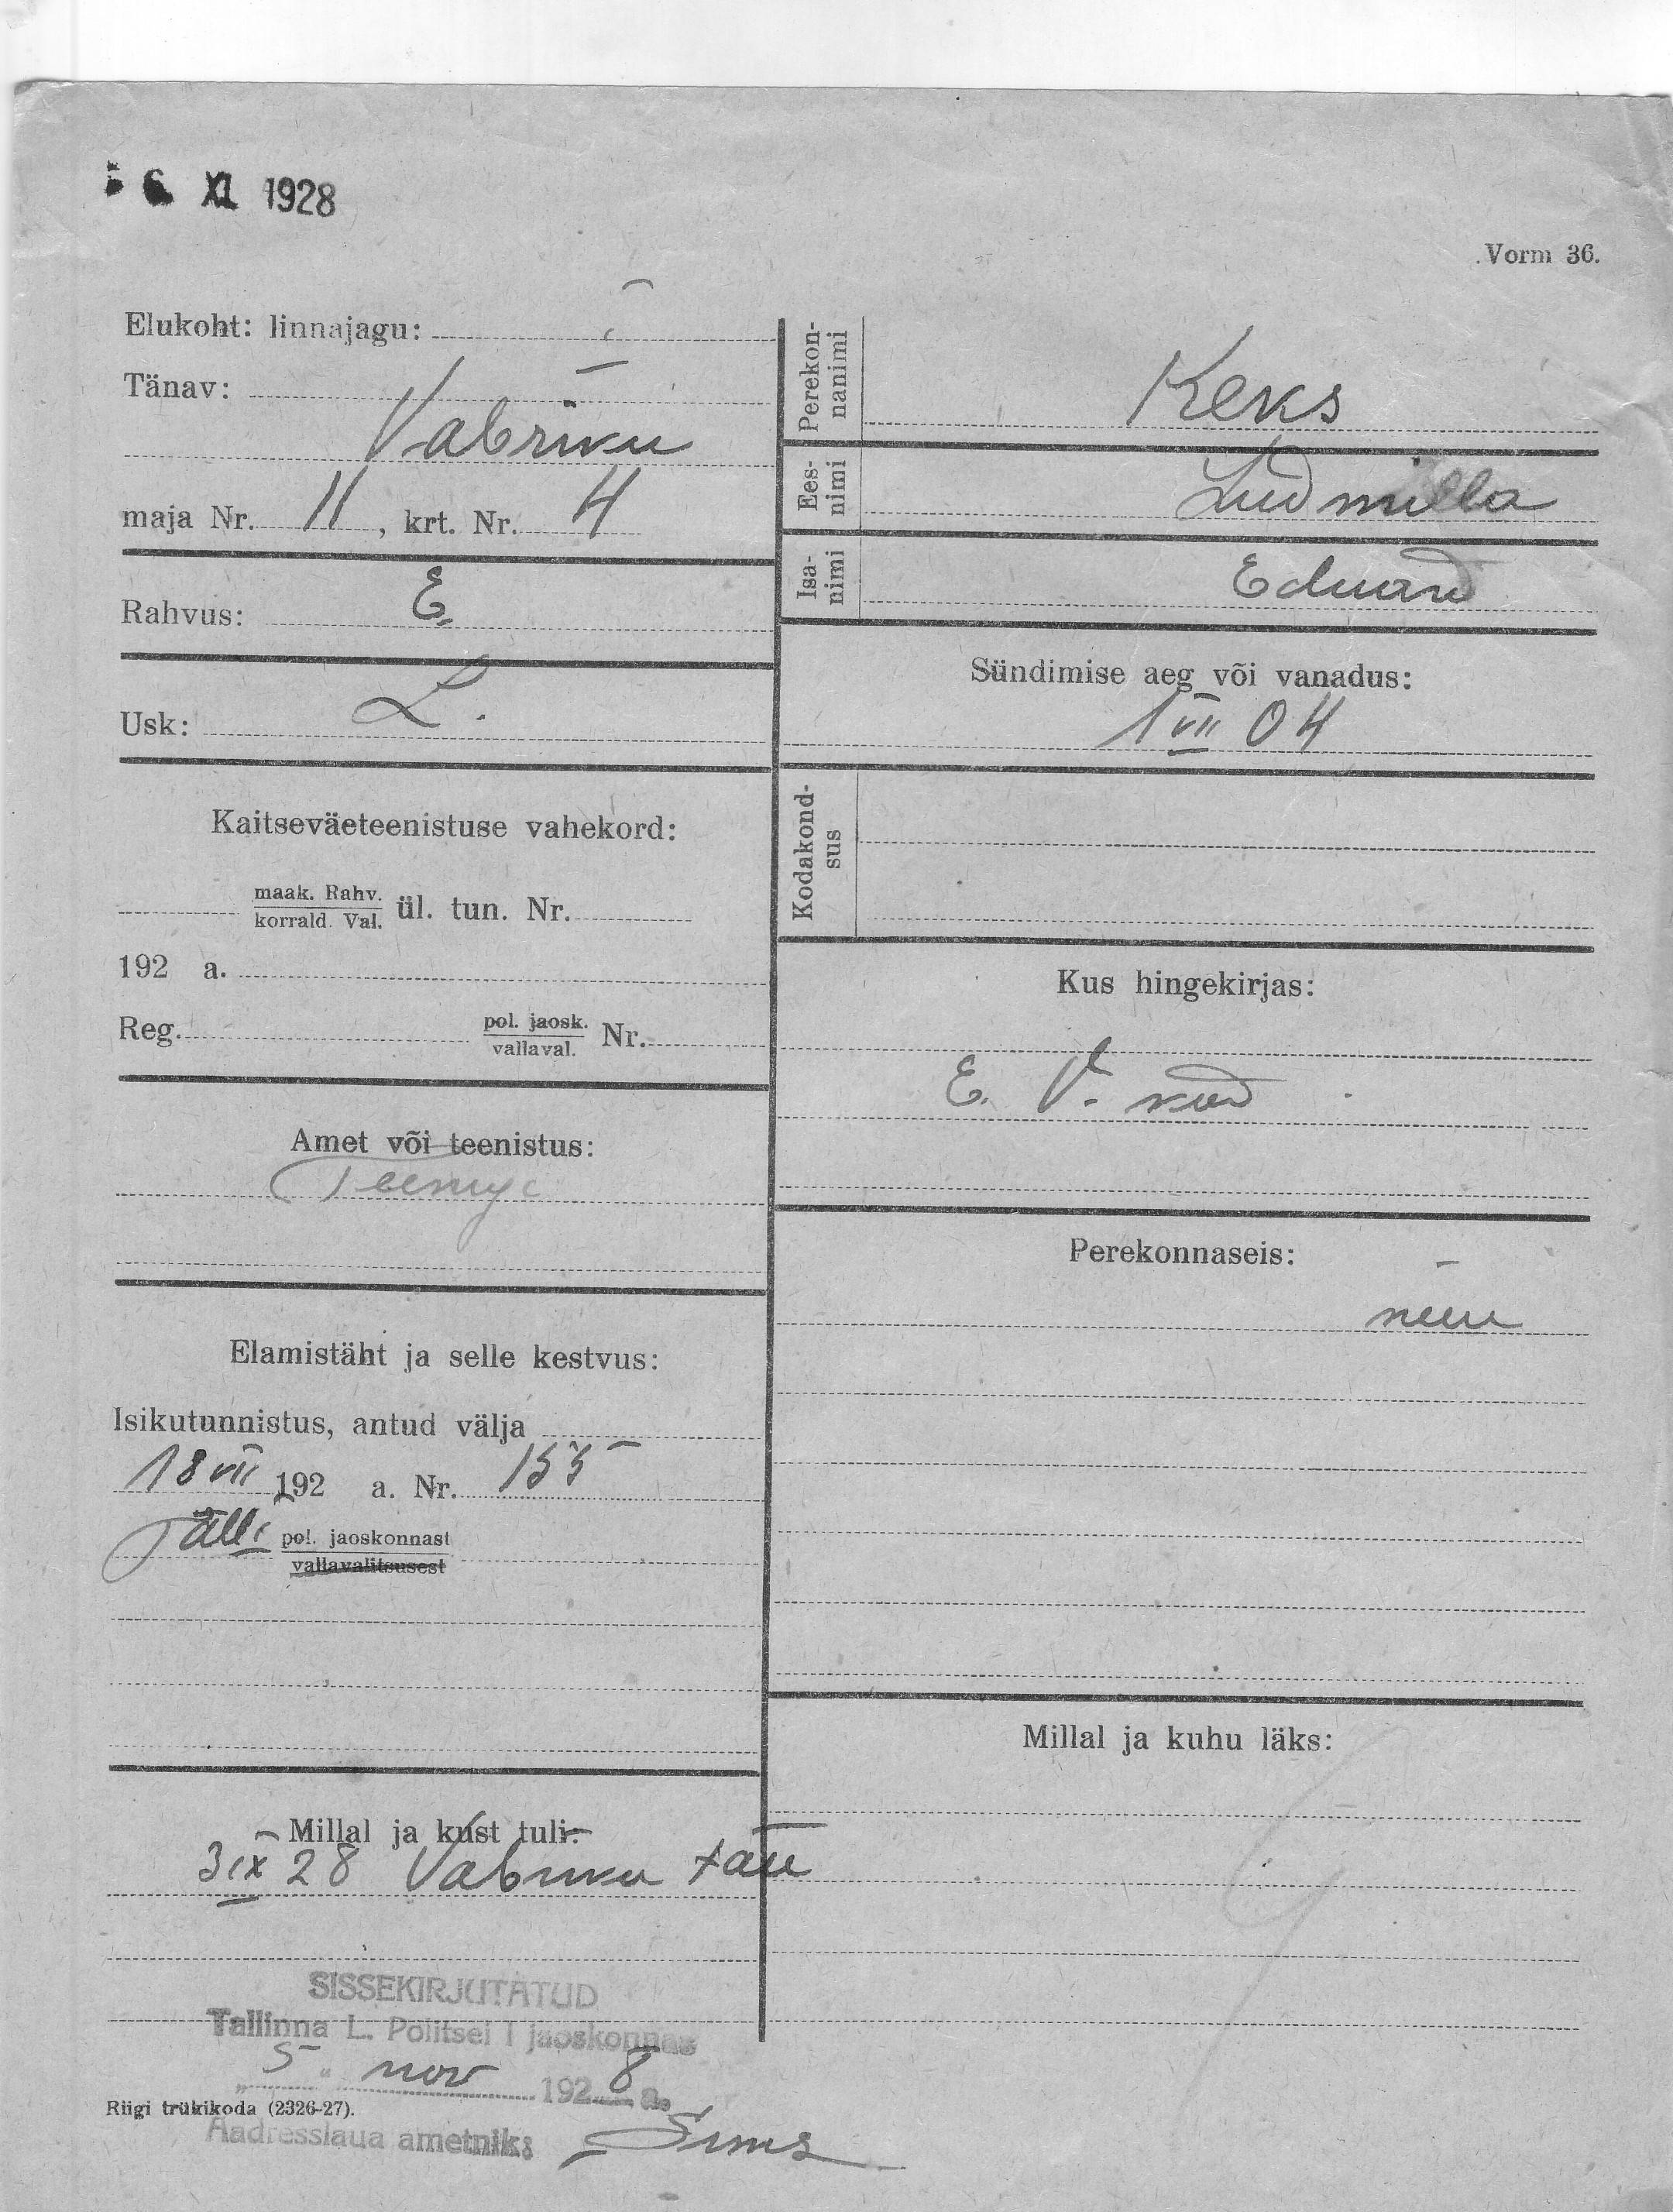 6 XI 1928
Vorm 36.
Elukoht: linnajagu:
Tänav:
Vabriku
maja Nr. 11, krt. Nr. 4
Rahvus: E.
Usk: L.
Kaitseväeteenistuse vahekord:
maak. Rahv.
korrald. Val. ül. tun. Nr.
192 a.
Reg. pol. jaosk.
vallaval. Nr.
Amet või teenistus:
Elamistäht ja selle kestvus:
Isikutunnistus, antud välja
18 VII 192 a. Nr.
pol. jaoskonnast
vallavalitsusest
Millal ja kust tuli:
3 IX 28 Vabriku tän
SISSEKIRJUTATUD
Tallinna L. Politsei I jaoskonnas
"5" nov 1928 a.
Riigi trükikoda (2326-27).
Aadresslaua ametnik:
Perekon-
nanimi
Keks
Ees-
nimi
Ludmilla
Isa-
nimi
Eduard
Sündimise aeg või vanadus:
1 VII 04
Kodakond-
sus
Kus hingekirjas:
E. V. kod
Perekonnaseis:
neiu
Millal ja kuhu läks: